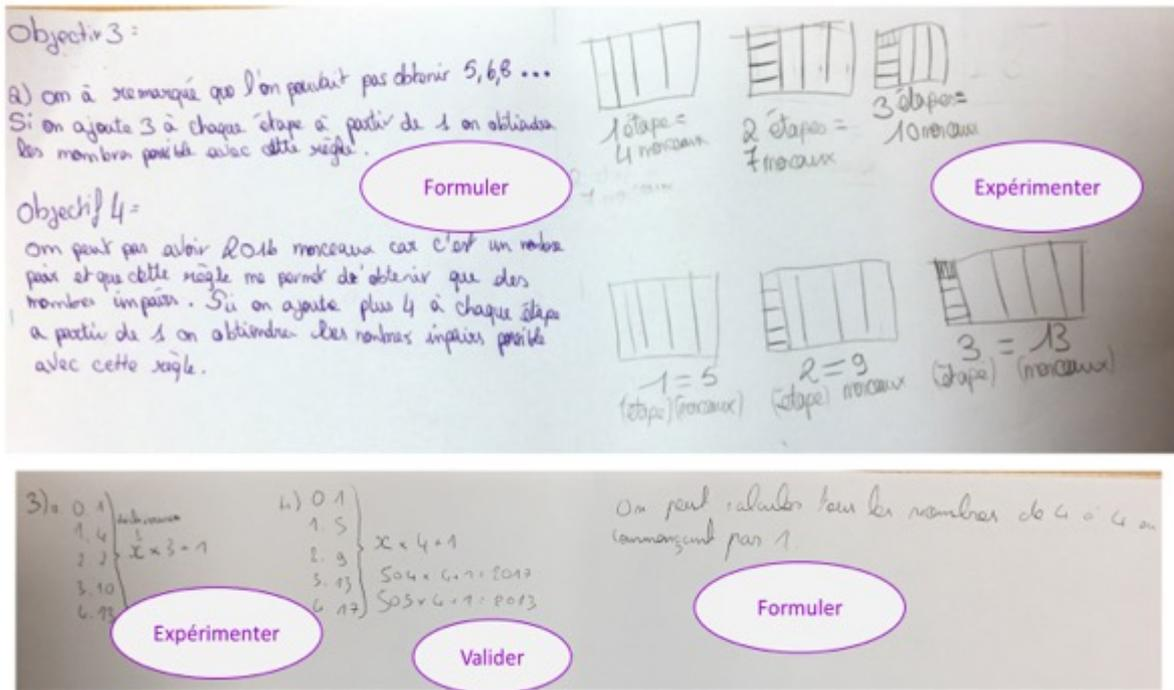 Objectif 3 :
a) on à remarqué que l'on pouvait pas obtenir 5,6,8 ...
Si on ajoute 3 à chaque étape à partir de 1 on obtiendra
les nombres possible avec cette règle.
Formuler
Objectif 4 =
on peut pas avoir 2016 morceaux car c'est un nombre
pair et que cette règle me permet de obtenir que des
nombres impairs. Si on ajoute plus 4 à chaque étape
a partir de 1 on obtiendra les nombres impairs possible
avec cette règle.
1 étape =
4 morceaux
2 étapes =
7 morceaux
3 étapes =
10 morceaux
Expérimenter
1 = 5
(étape) (morceaux)
2 = 9
(étape) morceaux
3 = 13
(étape) (morceaux)
3)
0 1
1. 4
2 7
3. 10
4. 13
x × 3 + 1
Expérimenter
4.) 0 1
1. 5
2. 9
3. 13
4 17
x × 4 + 1
504 × 4 + 1 = 2017
503 × 4 + 1 = 2013
Valider
On peut calculer tous les nombres de 4 à 4 en
commençant par 1
Formuler